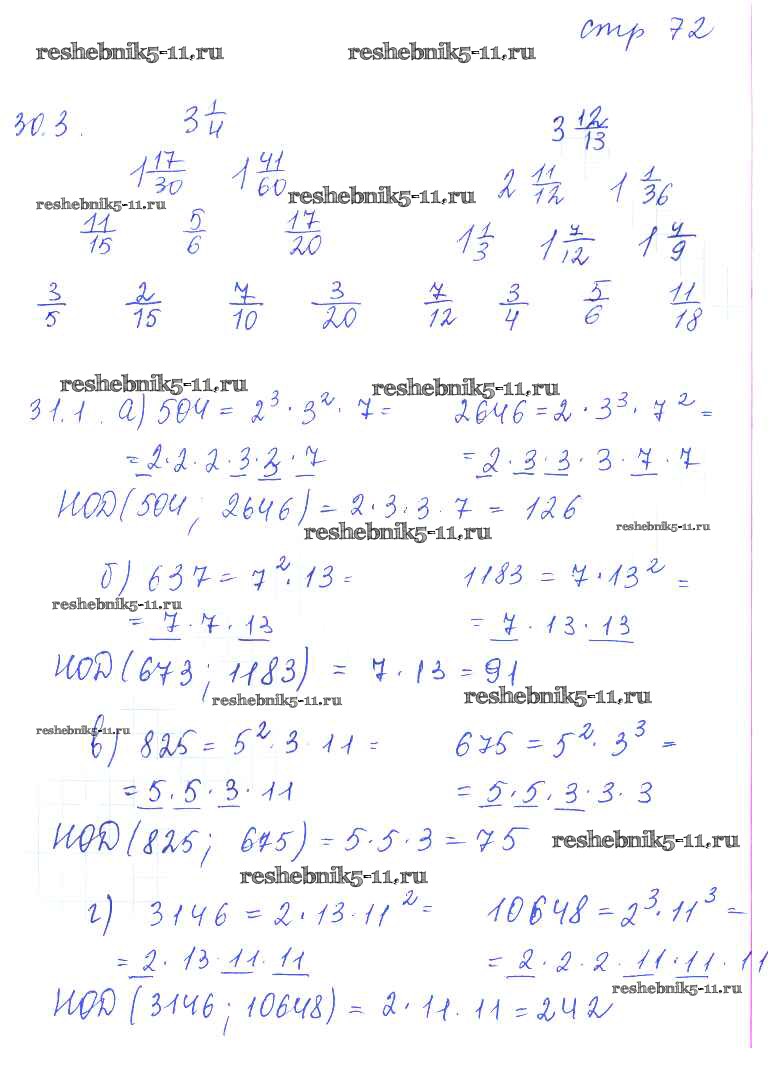 стр 72
reshebnik5-11.ru reshebnik5-11.ru
30.3. 3 1/4 3 12/13
1 17/30 1 41/60 2 11/12 1 1/36
reshebnik5-11.ru
reshebnik5-11.ru
11/15 5/6 17/20 1 1/3 1 7/12 1 4/9
3/5 2/15 7/10 3/20 7/12 3/4 5/6 11/18
reshebnik5-11.ru reshebnik5-11.ru
31.1. а) 504 = 2³·3²·7 = 2646 = 2·3³·7² =
= 2·2·2·3·3·7 = 2·3·3·3·7·7
НОД(504; 2646) = 2·3·3·7 = 126
reshebnik5-11.ru reshebnik5-11.ru
б) 637 = 7²·13 = 1183 = 7·13² =
reshebnik5-11.ru
= 7·7·13 = 7·13·13
НОД(673; 1183) = 7·13 = 91
reshebnik5-11.ru reshebnik5-11.ru
reshebnik5-11.ru
в) 825 = 5²·3·11 = 675 = 5²·3³ =
= 5·5·3·11 = 5·5·3·3·3
НОД(825; 675) = 5·5·3 = 75 reshebnik5-11.ru
reshebnik5-11.ru
г) 3146 = 2·13·11² = 10648 = 2³·11³ =
= 2·13·11·11 = 2·2·2·11·11·11
reshebnik5-11.ru
НОД(3146; 10648) = 2·11·11 = 242